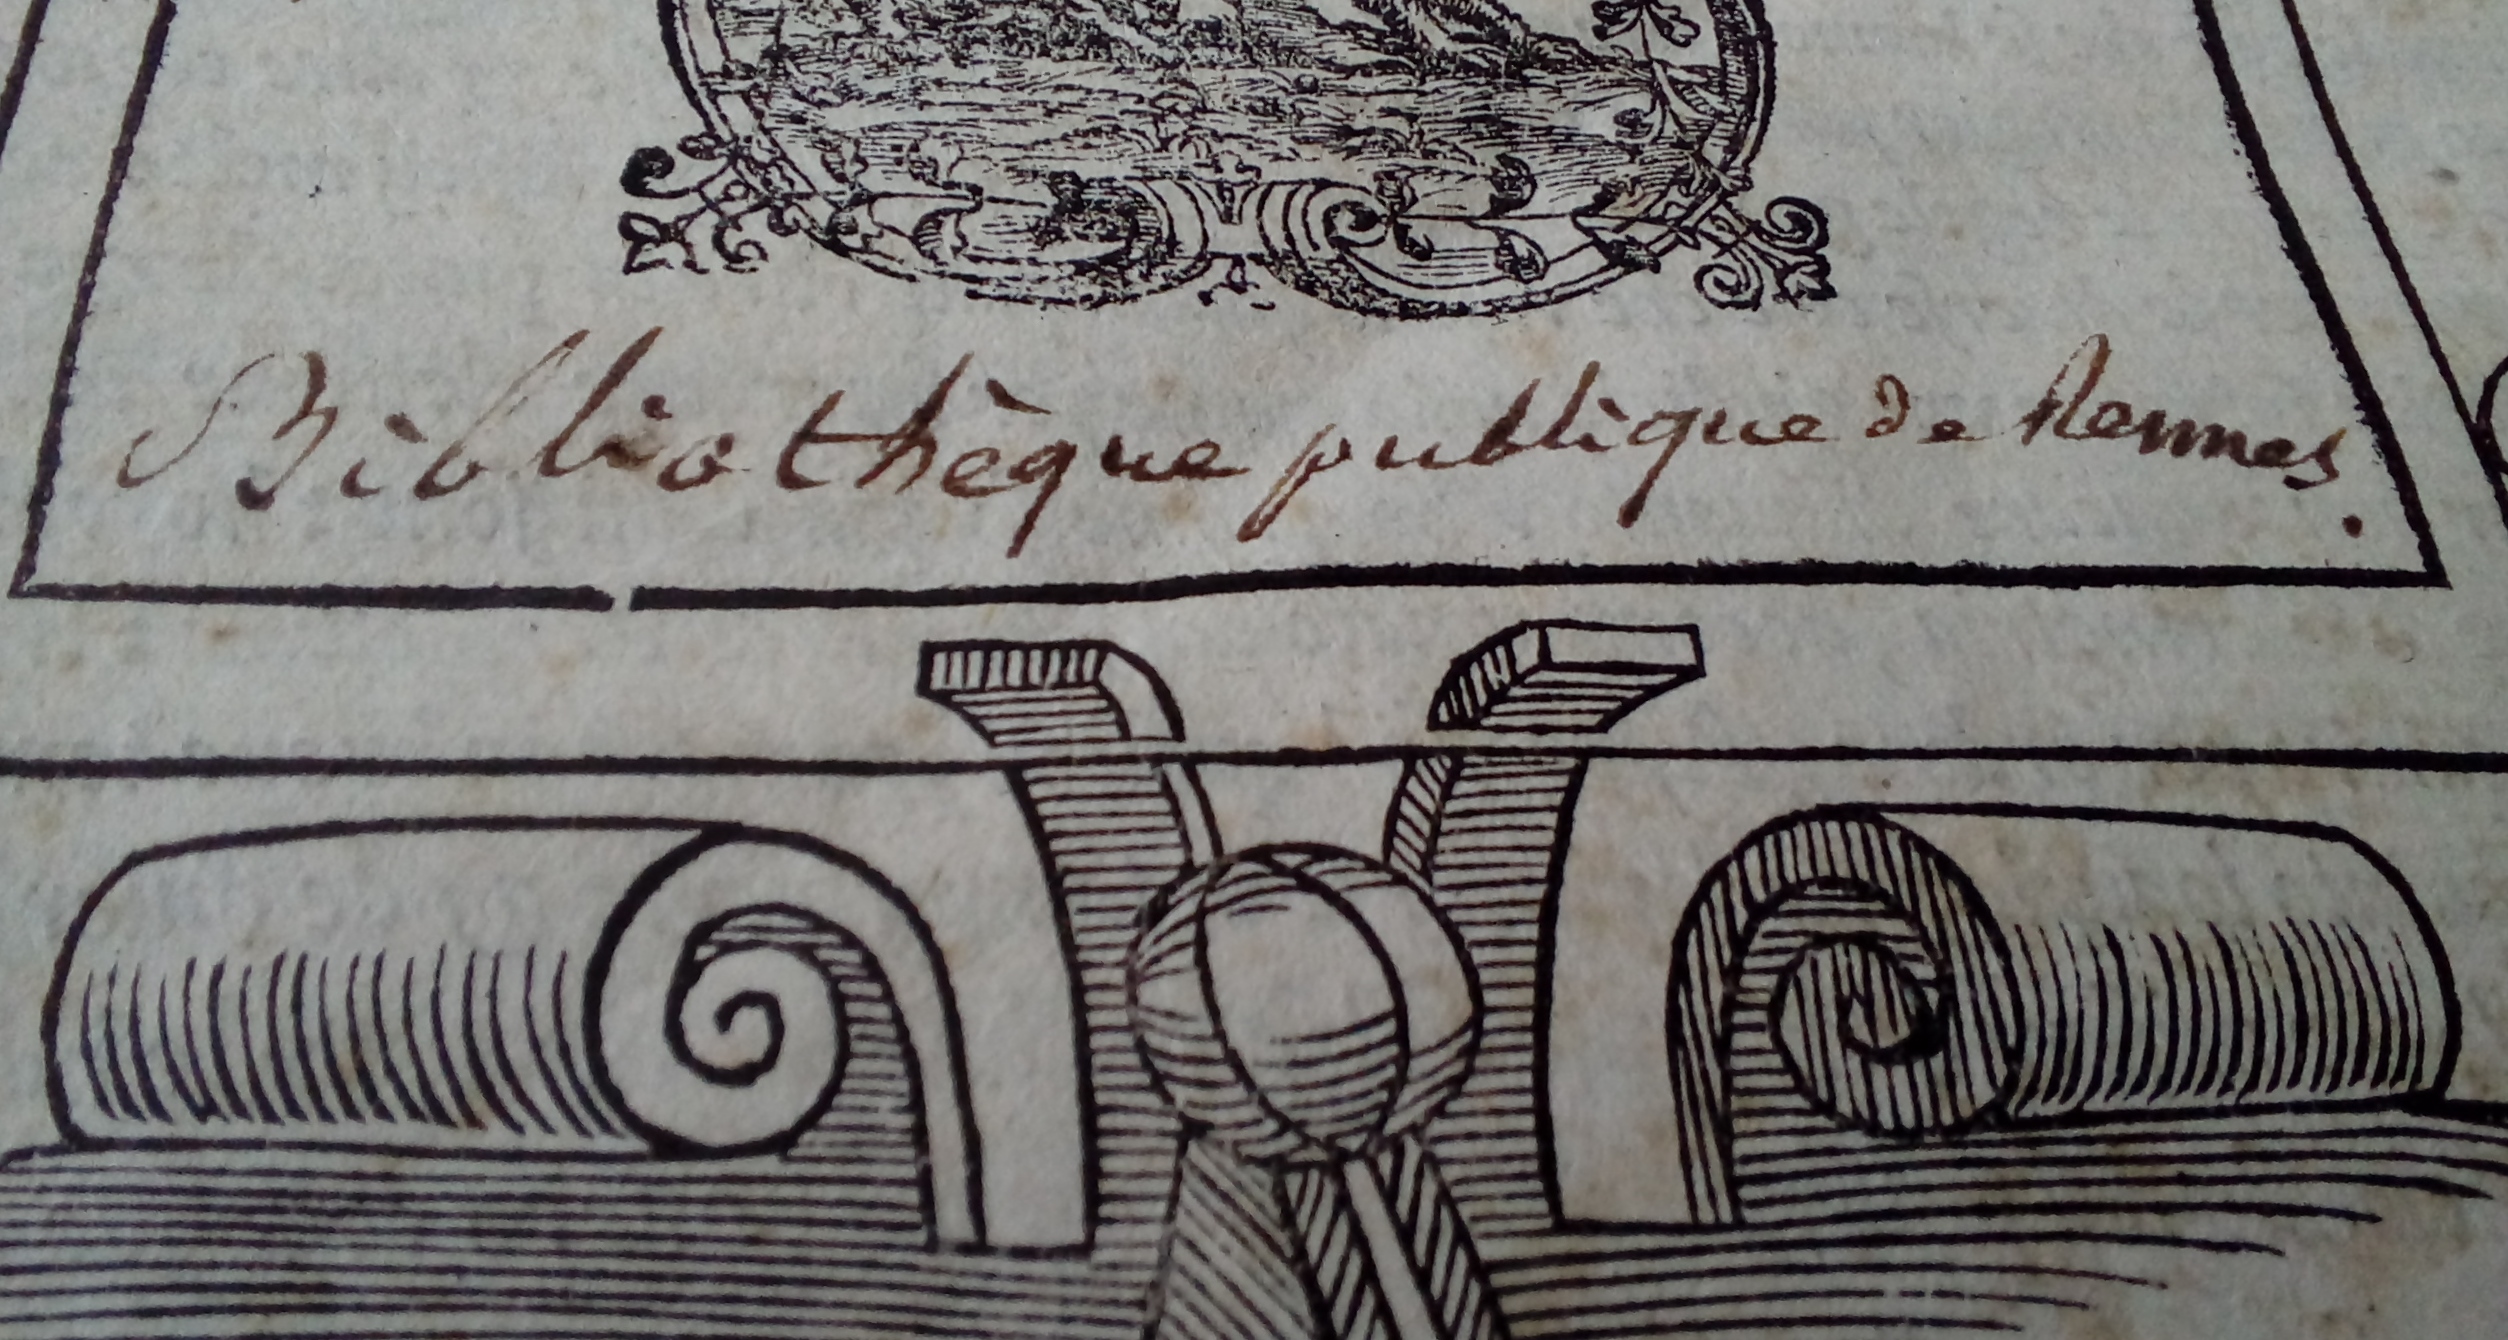 Bibliothèque publique de Rennes.